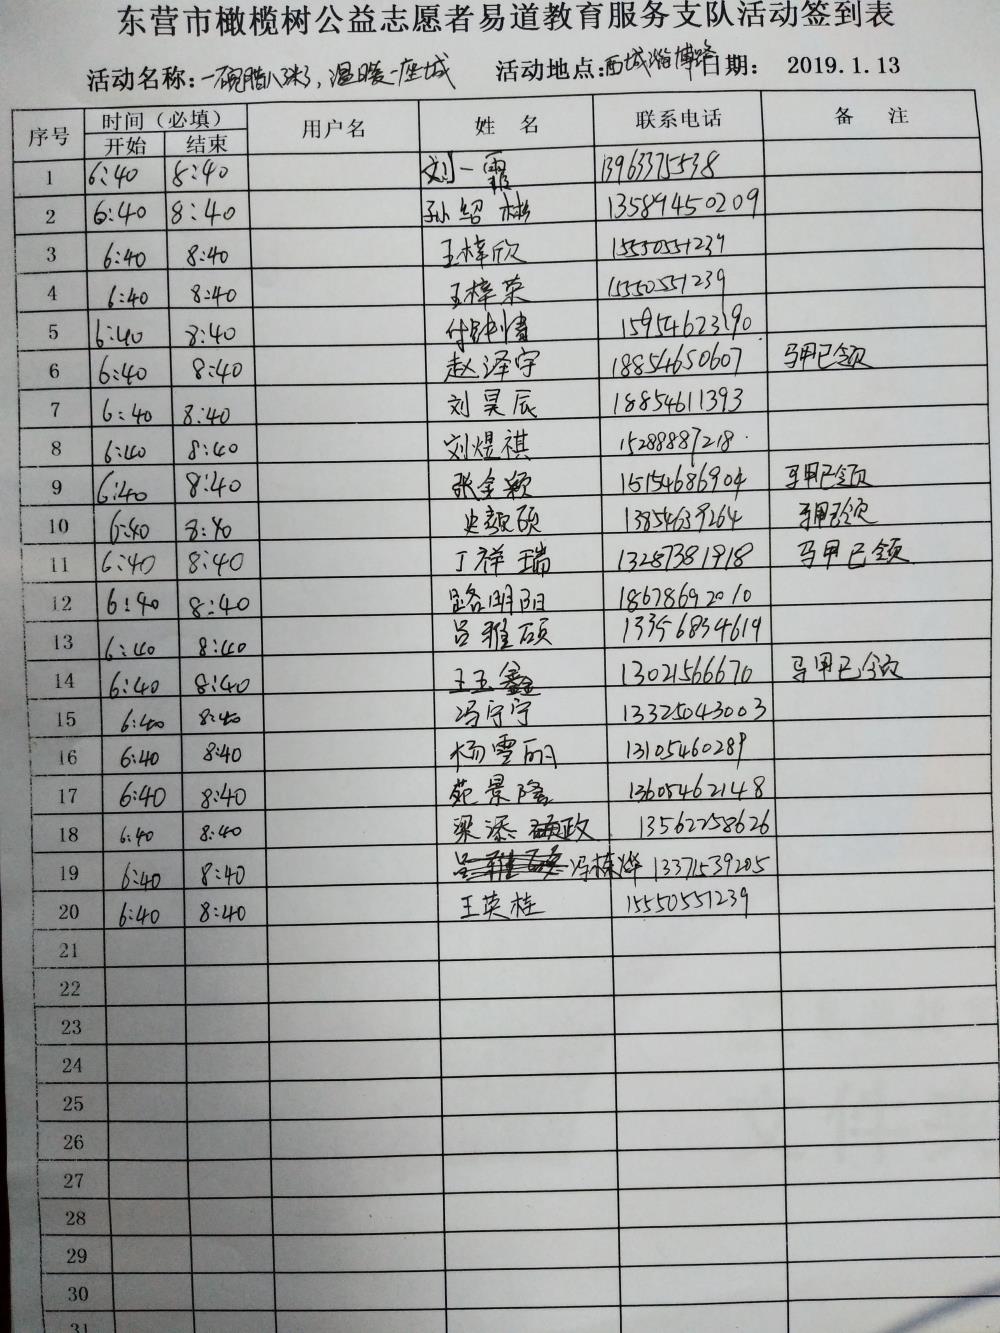 东营市橄榄树公益志愿者易道教育服务支队活动签到表
活动名称：一碗腊八粥，温暖一座城 活动地点：西城淄博路 日期： 2019.1.13
序号 时间（必填） 用户名 姓 名 联系电话 备 注
开始 结束
1 6:40 8:40 刘一霞 13963375538
2 6:40 8:40 孙绍彬 13589450209
3 6:40 8:40 王梓欣 15550551239
4 6:40 8:40 王梓荣 15550551239
5 6:40 8:40 付 15954623190
6 6:40 8:40 赵泽宇 18854650607 马甲已领
7 6:40 8:40 刘昊辰 18854611393
8 6:40 8:40 刘煜祺 15288887218
9 6:40 8:40 张金颖 15154686904 马甲已领
10 6:40 8:40 史 硕 13854639264 马甲已领
11 6:40 8:40 丁祥瑞 13287381918 马甲已领
12 6:40 8:40 路明阳 18678692010
13 6:40 8:40 吕雅硕 13356834619
14 6:40 8:40 王玉鑫 13021566670 马甲已领
15 6:40 8:40 冯宁宁 13325043003
16 6:40 8:40 杨雪丽 13105460289
17 6:40 8:40 苑景隆 13605462148
18 6:40 8:40 梁添 政 13562258626
19 6:40 8:40 吕雅硕 冯栋烨 13371539205
20 6:40 8:40 王英桂 15550551239
21
22
23
24
25
26
27
28
29
30
31